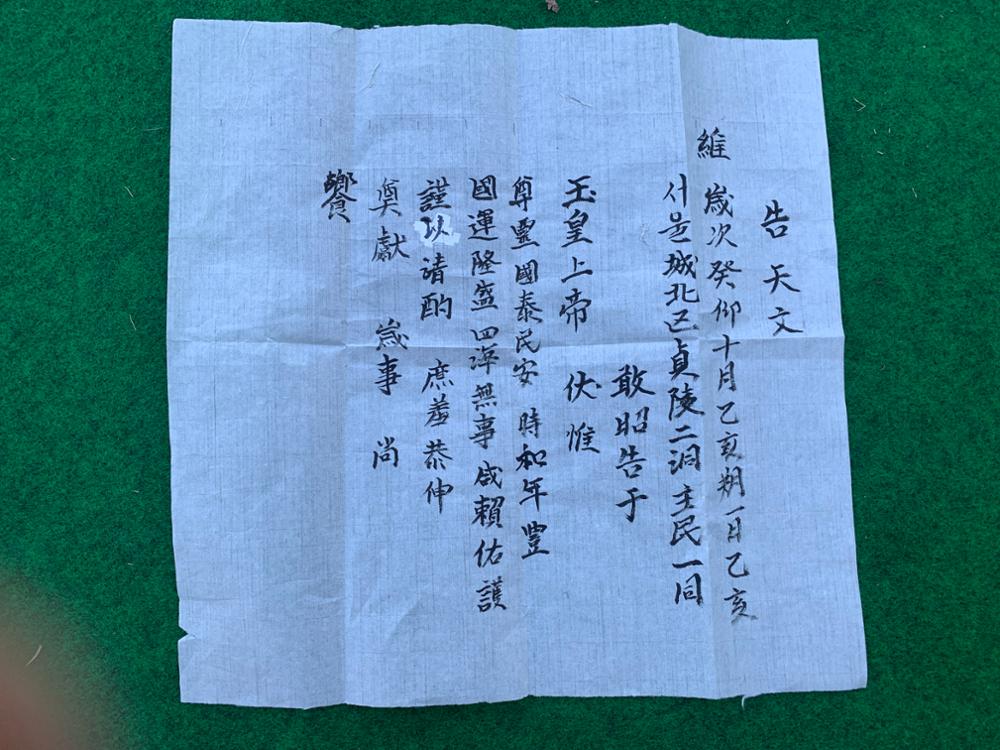 告天文
維 歲次癸卯十月乙亥朔一日乙亥
서울城北区貞陵二洞主民一同
敢昭告于
玉皇上帝 伏惟
尊靈國泰民安 時和年豊
國運隆盛 四海無事 咸賴佑護
謹以淸酌 庶羞恭伸
奠獻 歲事 尚
饗